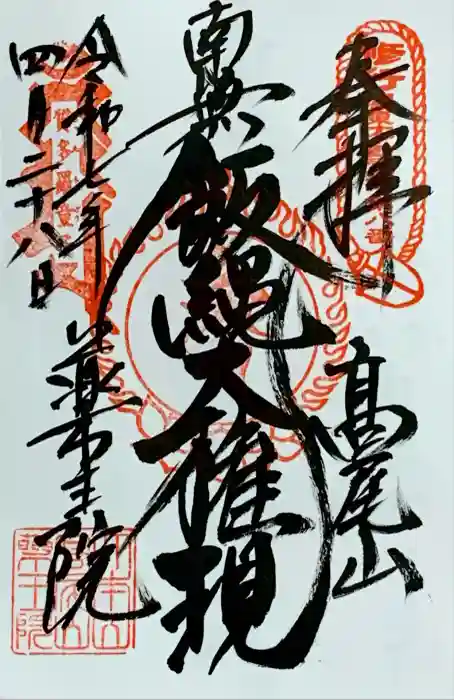 奉拝
高尾山
南無飯縄大権現
令和七年
四月二十八日
薬王院